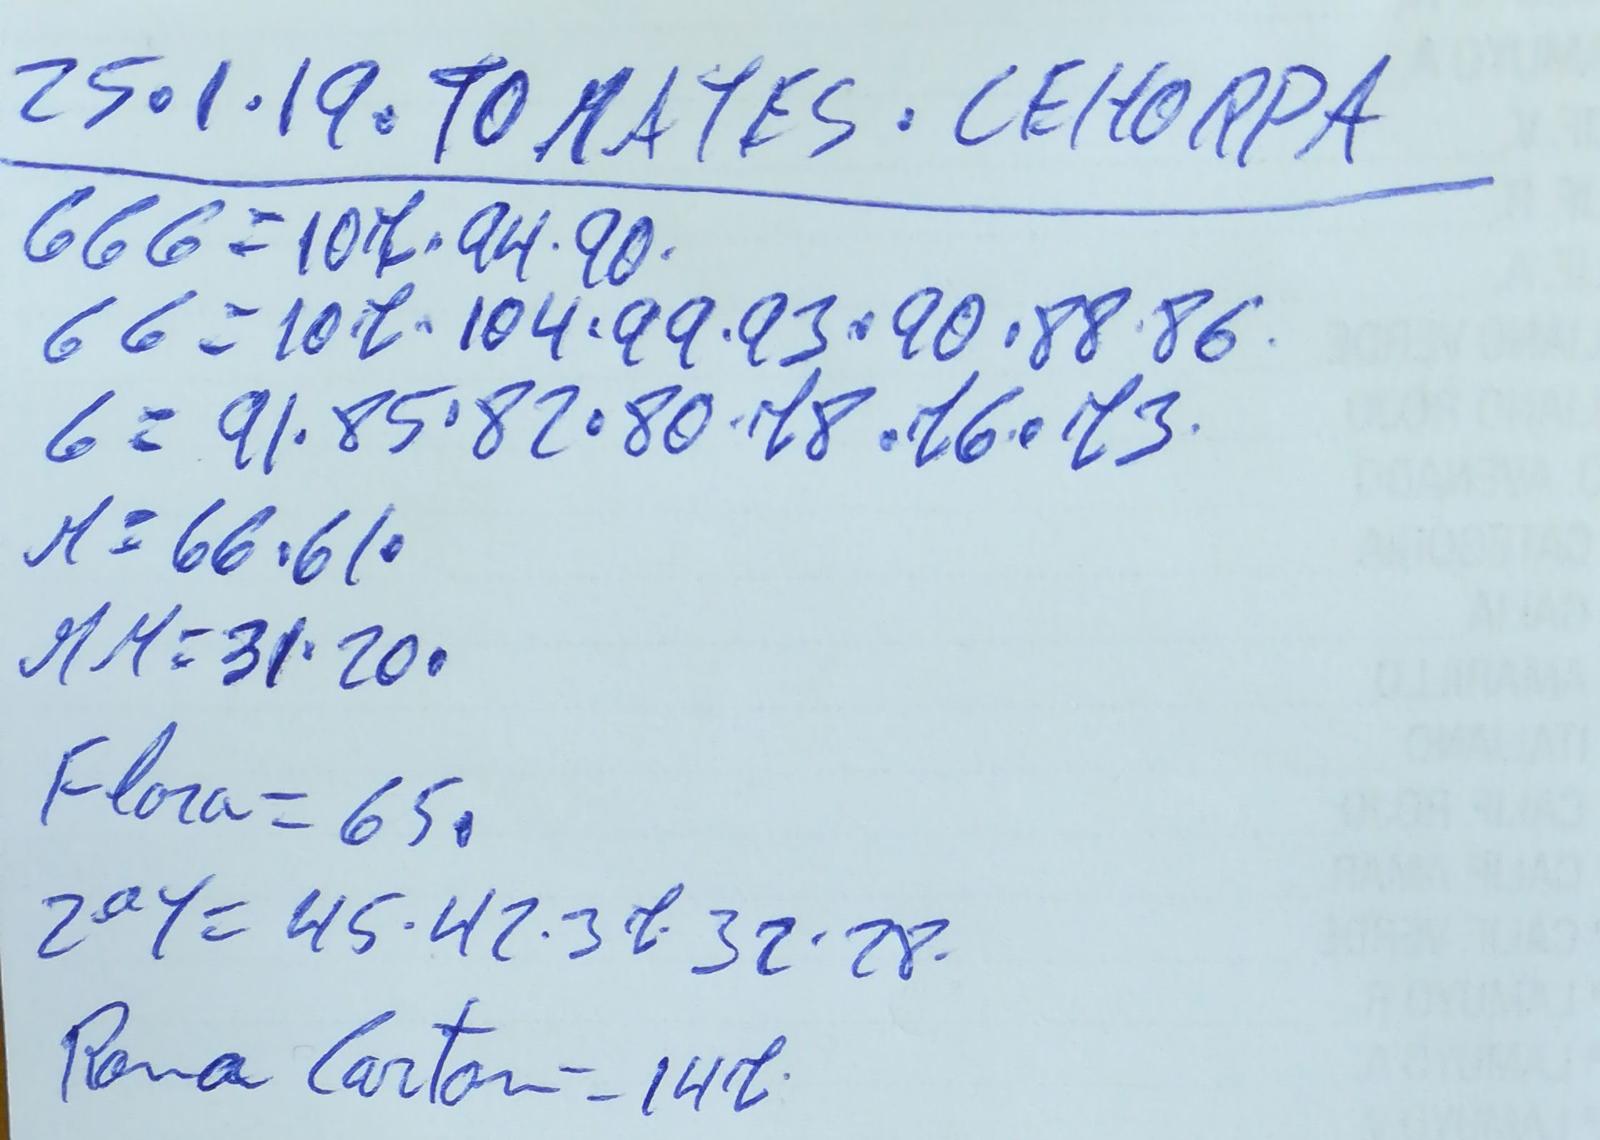 25.1.19. TOMATES. CEHORPA
GGG = 107. 94. 90.
GG = 107. 104. 99. 93. 90. 88. 86.
G = 91. 85. 82. 80. 78. 76. 73.
M = 66. 61.
MM = 31. 20.
Flora = 65.
2ªY = 45. 42. 37. 32. 28.
Rama Carton = 147.